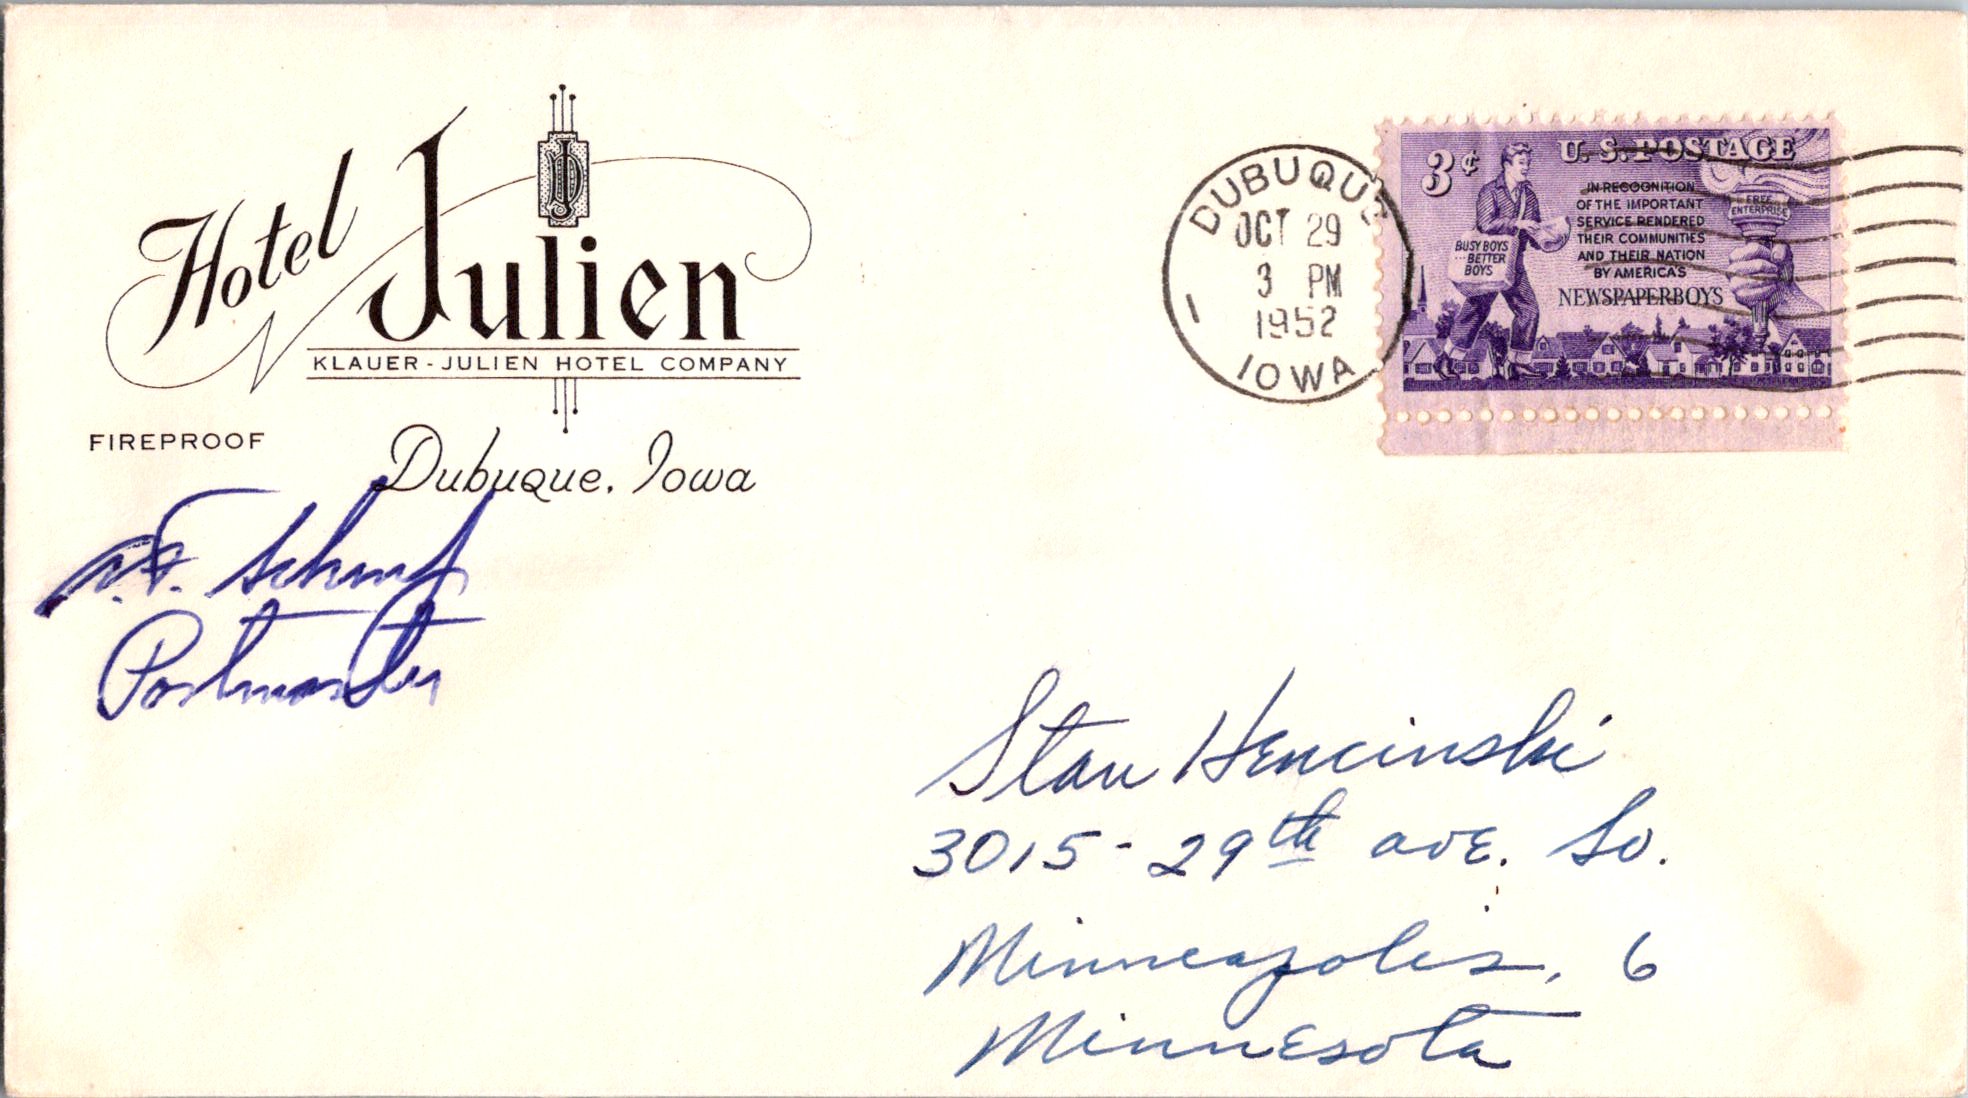 Hotel Julien
KLAUER-JULIEN HOTEL COMPANY
FIREPROOF
Dubuque, Iowa
Postmaster
DUBUQUE
OCT 29
3 PM
1952
IOWA
1
3¢
U.S. POSTAGE
IN RECOGNITION
OF THE IMPORTANT
SERVICE RENDERED
THEIR COMMUNITIES
AND THEIR NATION
BY AMERICA'S
NEWSPAPERBOYS
BUSY BOYS
...BETTER
BOYS
FREE
ENTERPRISE
Stan Hencinski
3015-29th ave. So.
Minneapolis, 6
Minnesota